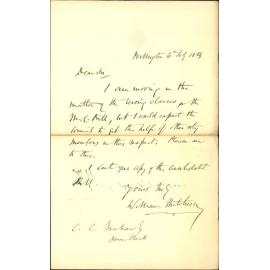 Wellington 6th July 1889
Dear Sir,
I am moving in the
matter of the leasing clauses in the
M. C. Bill, but I would expect the
Council to get the help of other city
members in this respect. Please see
to this.
I send you copy of the consolidated
Bill.
Yours truly
William Hutchison
C. C.
Town Clerk